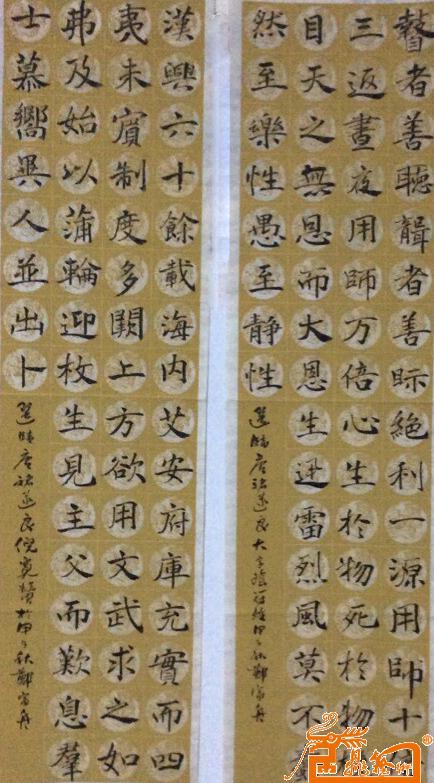 瞽者善聴聾者善眎絶利一源用師十
三返晝夜用師万倍心生於物死於物
目天之無恩而大恩生迅雷烈風莫不
然至樂性愚至静性
選臨唐褚遂良大字陰符經甲午秋鄭
漢興六十餘載海内艾安府庫充實而四
夷未賓制度多闕上方欲用文武求之如
弗及始以蒲輪迎枚生見主父而歎息羣
士慕嚮異人並出卜
選臨唐褚遂良倪寬贊於甲午秋鄭